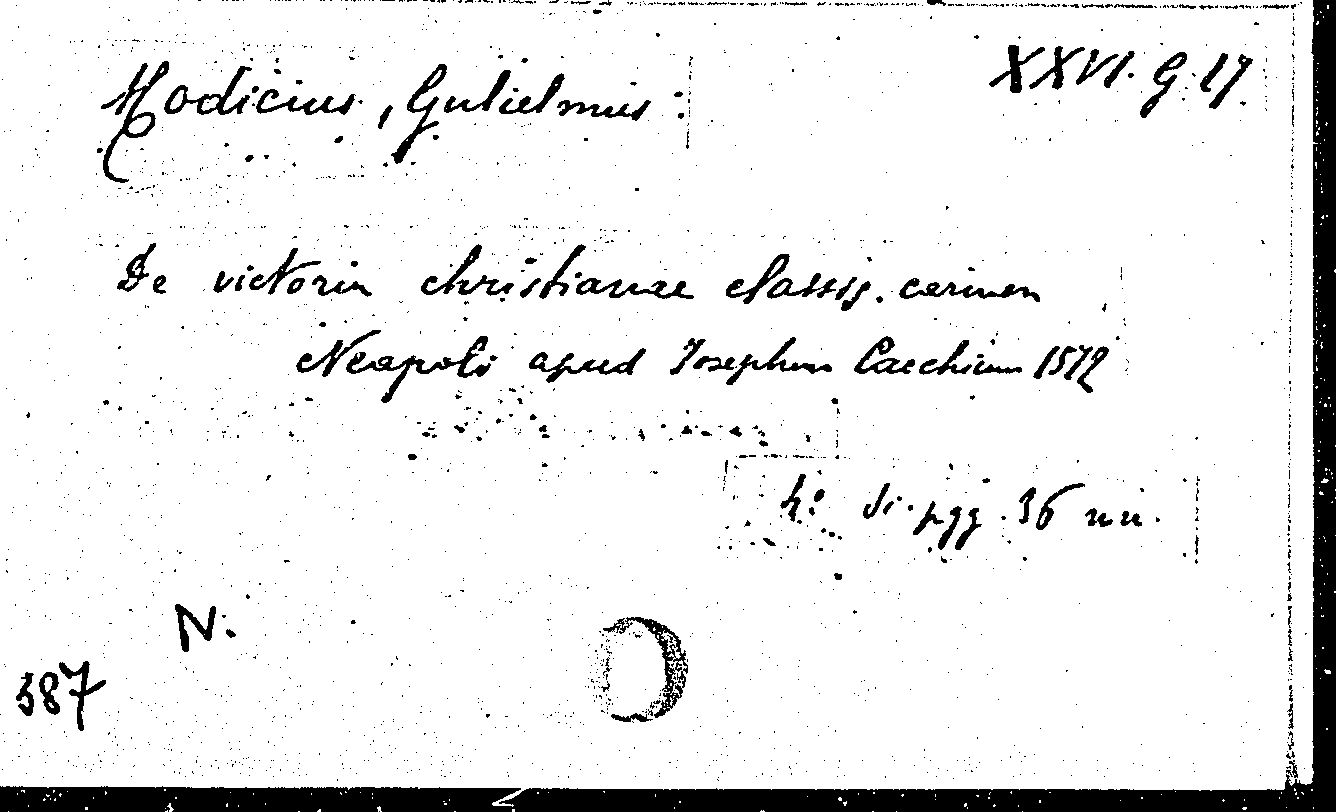 Modicius, Gulielmus:
XXVI. G. 17.
De victoria christianae classis. carmen
Neapoli apud Josephum Cacchium 1572
4° di pgg. 36 nn.
N.
387